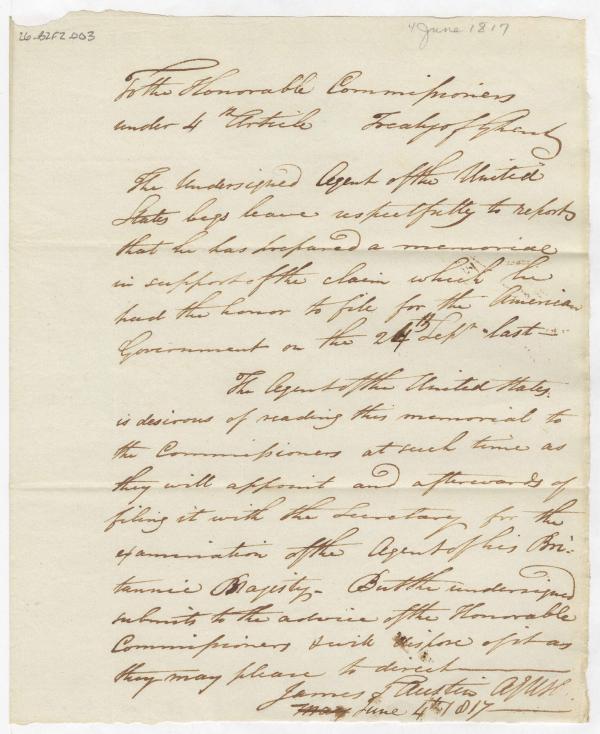 26-B2F2.003
4 June 1817
To the Honorable Commissioners
under 4th Article Treaty of Ghent
The Undersigned Agent of the United
States begs leave respectfully to report
that he has prepared a memorial
in support of the claim which he
had the honor to file for the American
Government on the 24th Sept. last—
The Agent of the United States.
is desirous of reading this memorial to
the Commissioners at such time as
they will appoint and afterwards of
filing it with the Secretary for the
examination of the Agent of his Bri-
tannic Majesty— But the undersigned
submits to the advice of the Honorable
Commissioners & will dispose of it as
they may please to direct—
James T Austin A.G.U.S.
June 4th 1817—